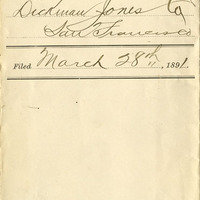 Dickman Jones Co
San Francisco
Filed March 28th, 1891.